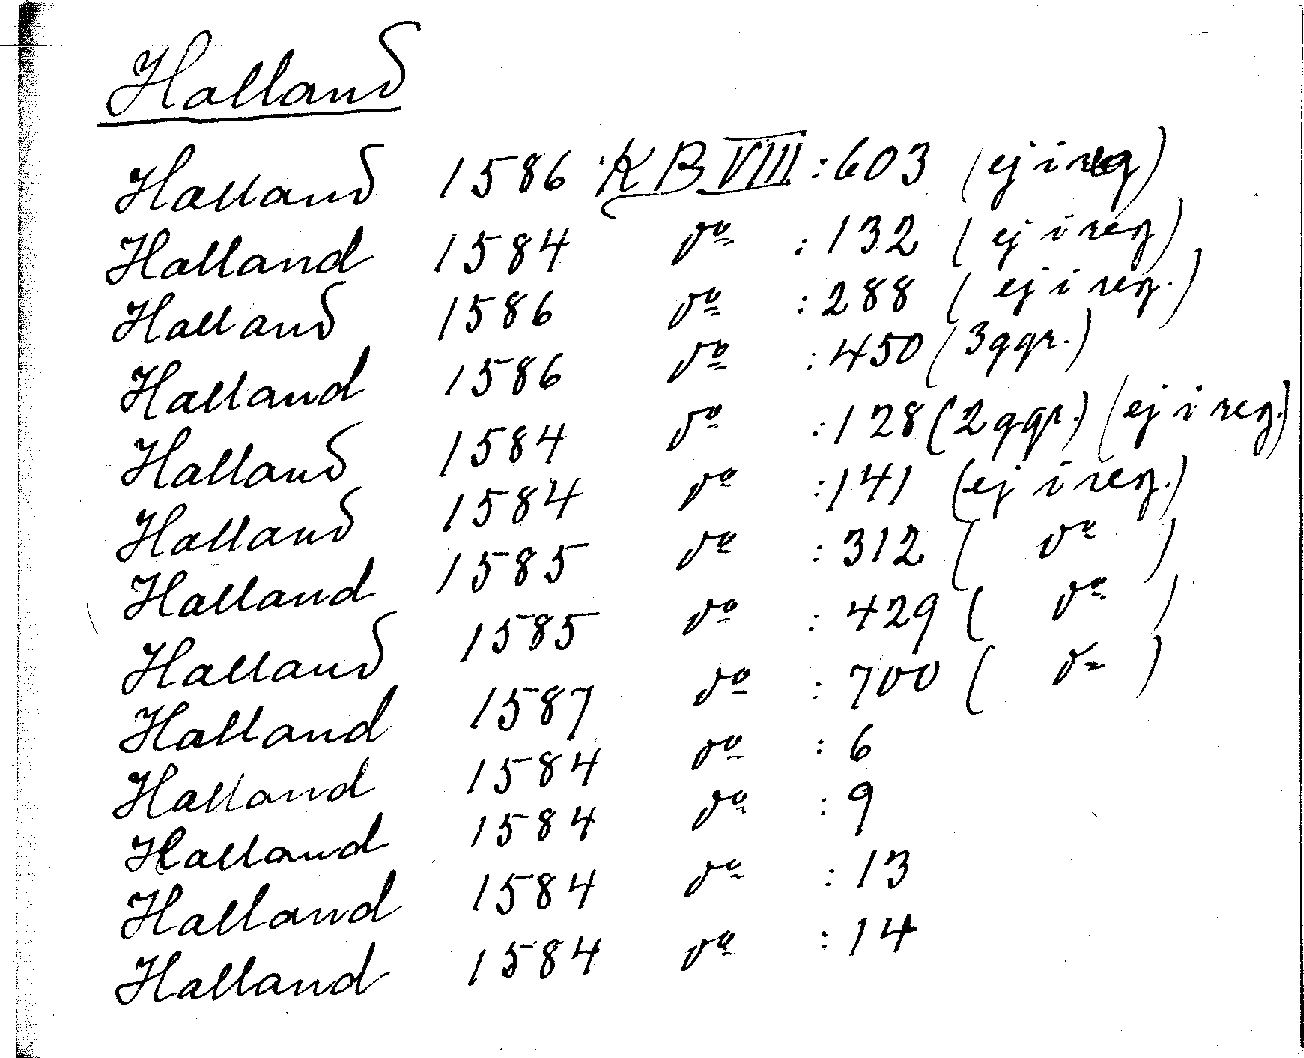 Halland
Halland 1586 KB VIII : 603 (ej i reg)
Halland 1584 dº : 132 (ej i reg)
Halland 1586 dº : 288 (ej i reg.)
Halland 1586 dº : 450 (3 ggr.)
Halland 1584 dº : 128 (2 ggr.) (ej i reg.)
Halland 1584 dº : 141 (ej i reg.)
Halland 1585 dº : 312 ( dº )
Halland 1585 dº : 429 ( dº )
Halland 1587 dº : 700 ( dº )
Halland 1584 dº : 6
Halland 1584 dº : 9
Halland 1584 dº : 13
Halland 1584 dº : 14